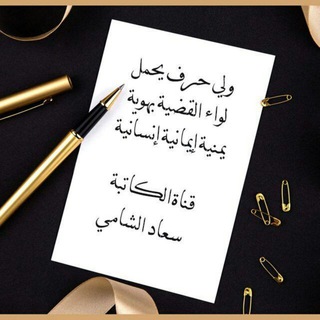 ولي حرف يحمل
لواء القضية بهوية
يمنية إيمانية إنسانية
قناة الكاتبة
سعاد الشامي